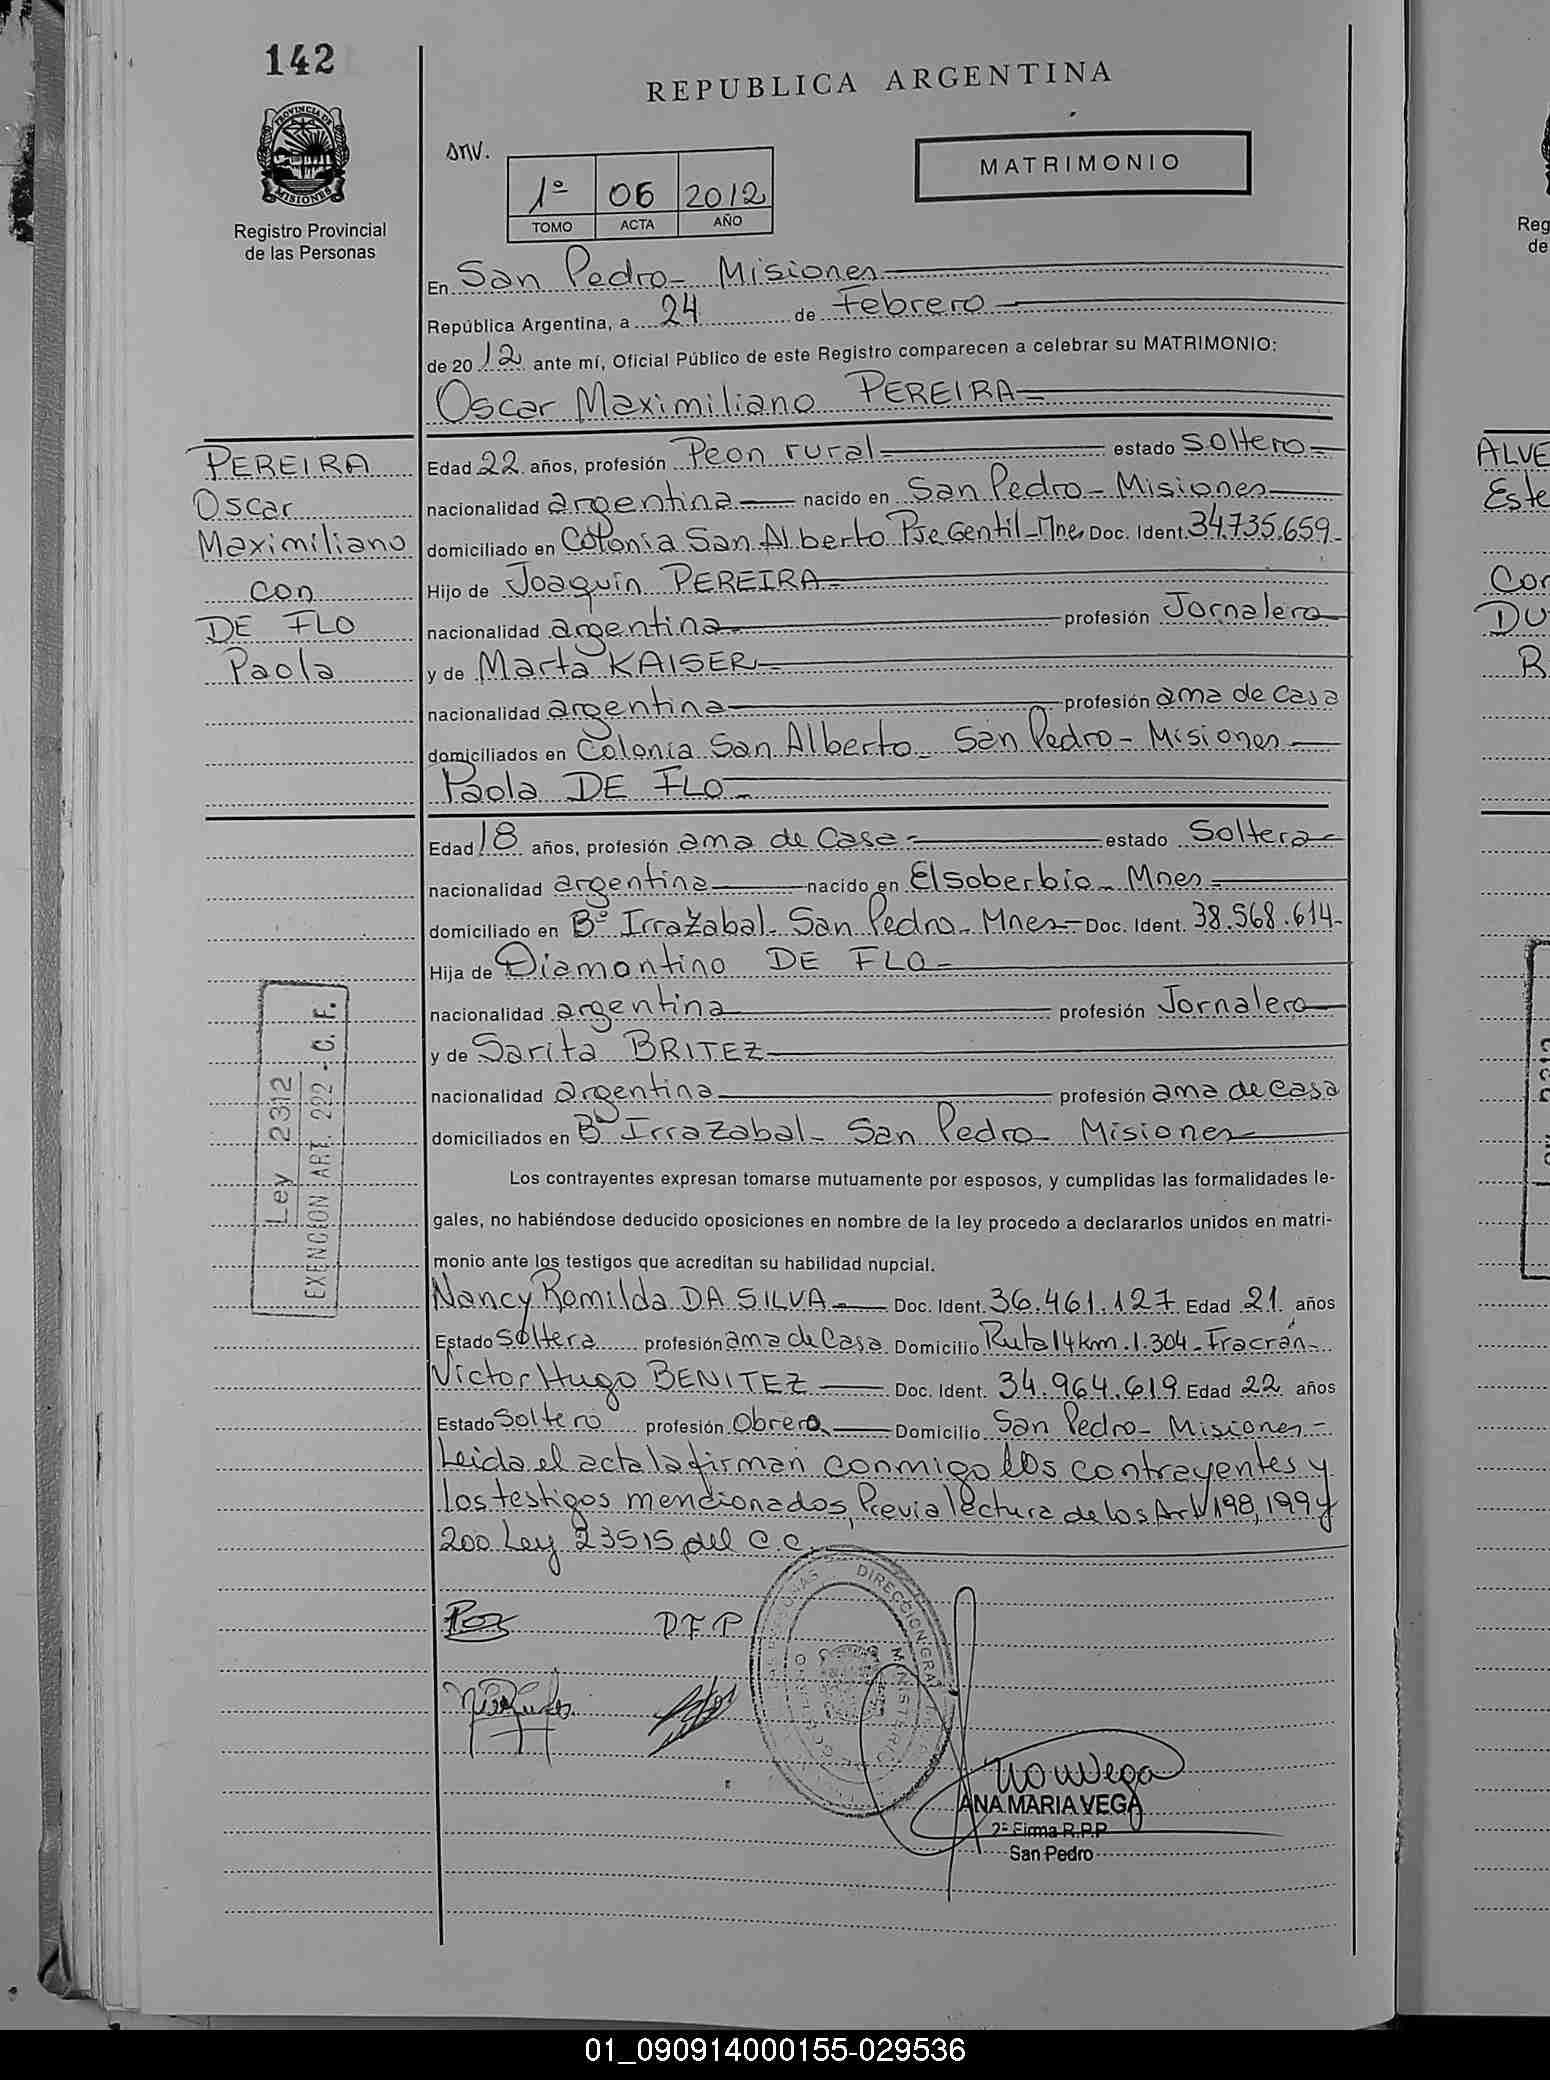 142
REPUBLICA ARGENTINA
PROVINCIA DE
MISIONES
Registro Provincial
de las Personas
MATRIMONIO
1º 06 2012
TOMO ACTA AÑO
En San Pedro - Misiones
República Argentina, a 24 de Febrero
de 2012 ante mí, Oficial Público de este Registro comparecen a celebrar su MATRIMONIO:
Oscar Maximiliano PEREIRA
PEREIRA
Oscar
Maximiliano
con
DE FLO
Paola
Edad 22 años, profesión Peon rural estado soltero
nacionalidad argentina nacido en San Pedro - Misiones
domiciliado en Colonia San Alberto Pje Gentil - Mnes Doc. Ident. 34.735.659-
Hijo de Joaquin PEREIRA
nacionalidad argentina profesión Jornalero
y de Marta KAISER
nacionalidad argentina profesión ama de casa
domiciliados en Colonia San Alberto - San Pedro - Misiones
Paola DE FLO
Edad 18 años, profesión ama de casa estado Soltera
nacionalidad argentina nacido en Elsoberbio - Mnes
domiciliado en Bº Irrazabal - San Pedro - Mnes - Doc. Ident. 38.568.614-
Hija de Diamantino DE FLO
nacionalidad argentina profesión Jornalero
y de Sarita BRITEZ
nacionalidad argentina profesión ama de casa
domiciliados en Bº Irrazabal - San Pedro - Misiones
Ley 2312
EXENCION ART. 222 - C. F.
Los contrayentes expresan tomarse mutuamente por esposos, y cumplidas las formalidades le-
gales, no habiéndose deducido oposiciones en nombre de la ley procedo a declararlos unidos en matri-
monio ante los testigos que acreditan su habilidad nupcial.
Nancy Romilda DA SILVA Doc. Ident. 36.461.127 Edad 21 años
Estado soltera profesión ama de casa Domicilio Ruta 14 km. 1.304 - Fracrán -
Victor Hugo BENITEZ Doc. Ident. 34.964.619 Edad 22 años
Estado soltero profesión Obrero Domicilio San Pedro - Misiones -
Leida el acta la firman conmigo los contrayentes y
los testigos mencionados, Previa lectura de los Art 198, 199 y
200 Ley 23515 del C.C.
D F P
DIRECCION GRAL
MINISTERIO
ANA MARIA VEGA
2ª Firma R.P.P
San Pedro
Reg
de
ALVE
Este
Con
DU
R
01_090914000155-029536